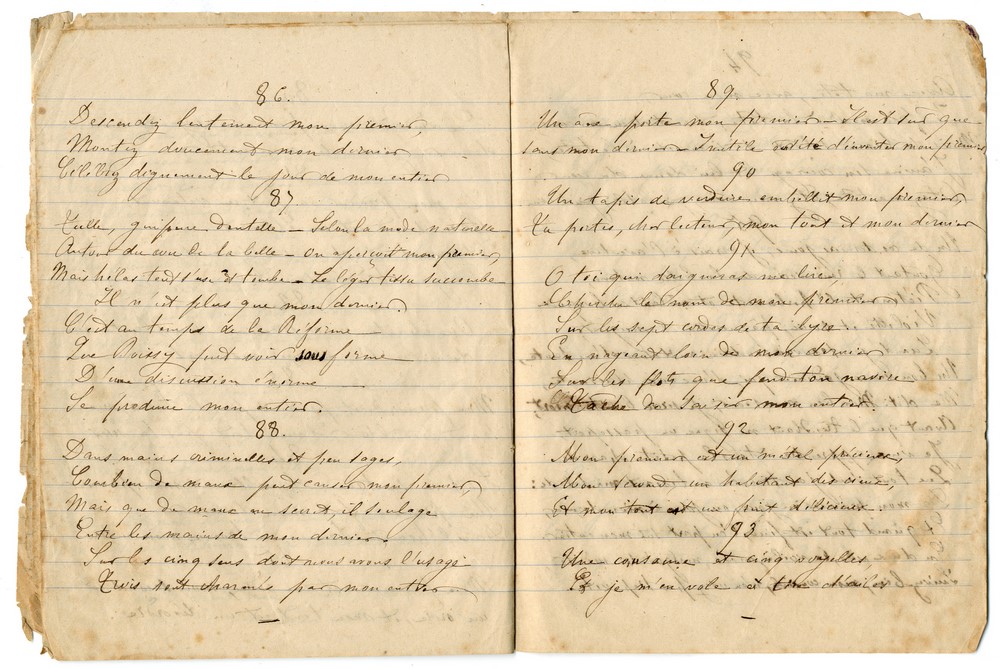 86.
Descendez lentement mon premier,
Montez doucement mon dernier
Célébrez dignement le jour de mon entier
87
Tulle, guipure dentelle – Selon la mode naturelle
Autour du cou de la belle – on aperçoit mon premier,
Mais hélas tout s'use et tombe – Le léger tissu succombe
Il n'est plus que mon dernier.
C'est au temps de la Réforme
Que Poissy put voir sous forme
D'une discussion énorme
Se produire mon entier.
88.
Dans mains criminelles et peu sages,
Combien de maux peut causer mon premier,
Mais que de maux en secret, il soulage
Entre les mains de mon dernier.
Sur les cinq sens dont nous avons l'usage
Trois sont charmés par mon entier
89
Un âne porte mon premier – Il est sûr que
sans mon dernier – Inutile eût été d'inventer mon premier
90
Un tapis de verdure embellit mon premier,
Tu portes, cher lecteur, mon tout et mon dernier
91
O toi qui daigneras me lire,
Cherche le nom de mon premier
Sur les sept cordes de ta lyre
En nageant loin de mon dernier
Sur les flots que fend ton navire
Tâche de saisir mon entier.
92
Mon premier est un métal précieux,
Mon second un habitant des cieux,
Et mon tout est un fruit délicieux.
93
Une consonne et cinq voyelles
Et je m'envole à d'ailes